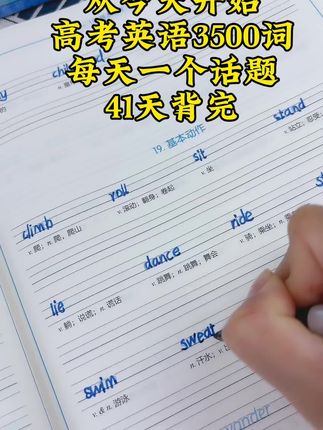 从今天开始
高考英语3500词
每天一个话题
41天背完
19. 基本动作
stand
sit
v. 坐
roll
v. 滚动；翻身；卷起
climb
v. 爬；n. 爬，爬山
ride
v. 骑；乘坐；n.
dance
v. 跳舞；n. 跳舞，舞会
lie
v. 躺；说谎；n. 谎话
sweat
n. 汗水；v.
swim
v. & n. 游泳